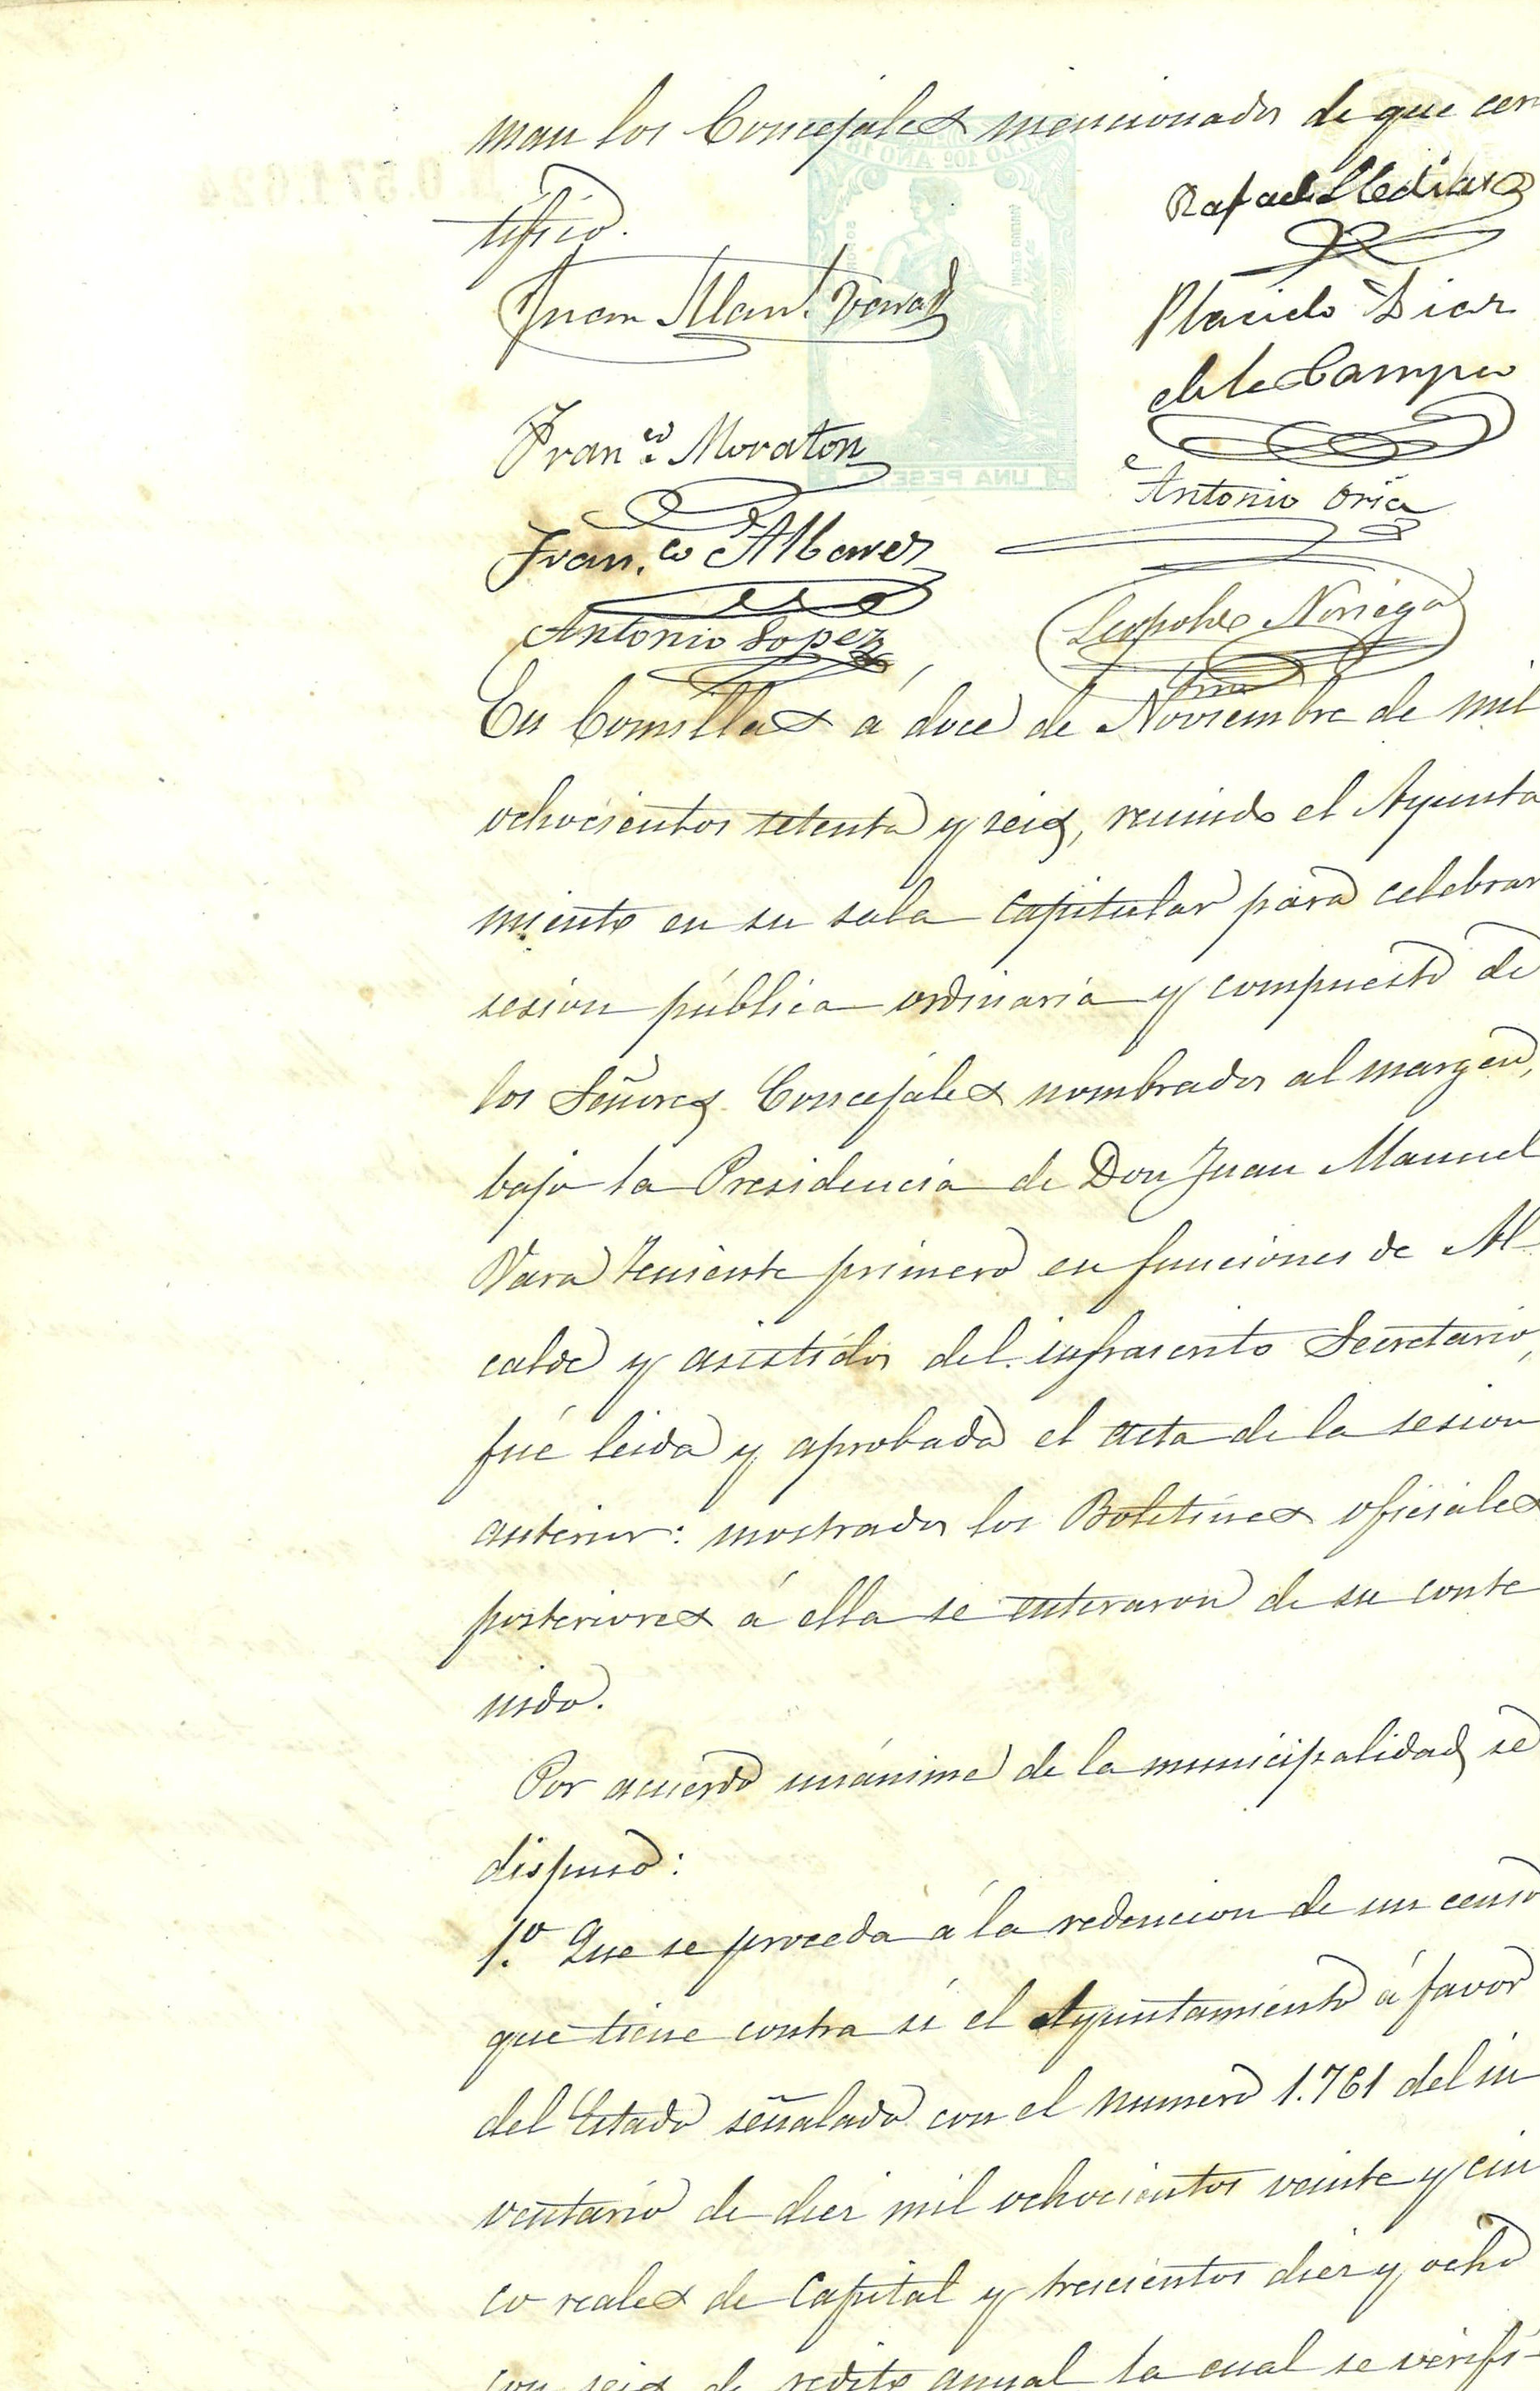 man los Concejales mencionados de que cer
tifico.
Rafael
Juan Man.l Vara
Placido Diaz
de la Campa
Fran.co Moraton
Antonio Oria
Fran.co Alvarez
Antonio Lopez
Leopoldo Noriega
En Comillas á doce de Noviembre de mil
ochocientos setenta y seis, reunido el Ayunta
miento en su sala capitular para celebrar
sesion pública ordinaria y compuesto de
los Señores Concejales nombrados al margen,
bajo la Presidencia de Don Juan Manuel
Vara Teniente primero en funciones de Al
calde y asistidos del infrascrito Secretario,
fué leida y aprobada el acta de la sesion
anterior: mostrados los Boletines oficiales
posteriores á ella se enteraron de su conte
nido.
Por acuerdo unánime de la municipalidad se
dispuso:
1.º Que se proceda á la redencion de un censo
que tiene contra sí el Ayuntamiento á favor
del Estado señalado con el numero 1.761 del in
ventario de diez mil ochocientos veinte y cin
co reales de Capital y trescientos diez y ocho
con seis de redito anual la cual se verifi-
UNA PESETA